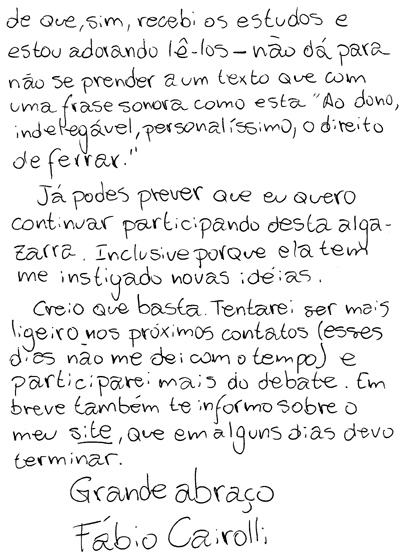 de que, sim, recebi os estudos e
estou adorando lê-los – não dá para
não se prender a um texto que com
uma frase sonora como esta "Ao dono,
indelegável, personalíssimo, o direito
de ferrar."
Já podes prever que eu quero
continuar participando desta alga-
zarra. Inclusive porque ela tem
me instigado novas idéias.
Creio que basta. Tentarei ser mais
ligeiro nos próximos contatos (esses
dias não me dei com o tempo) e
participarei mais do debate. Em
breve também te informo sobre o
meu site, que em alguns dias devo
terminar.
Grande abraço
Fábio Cairolli